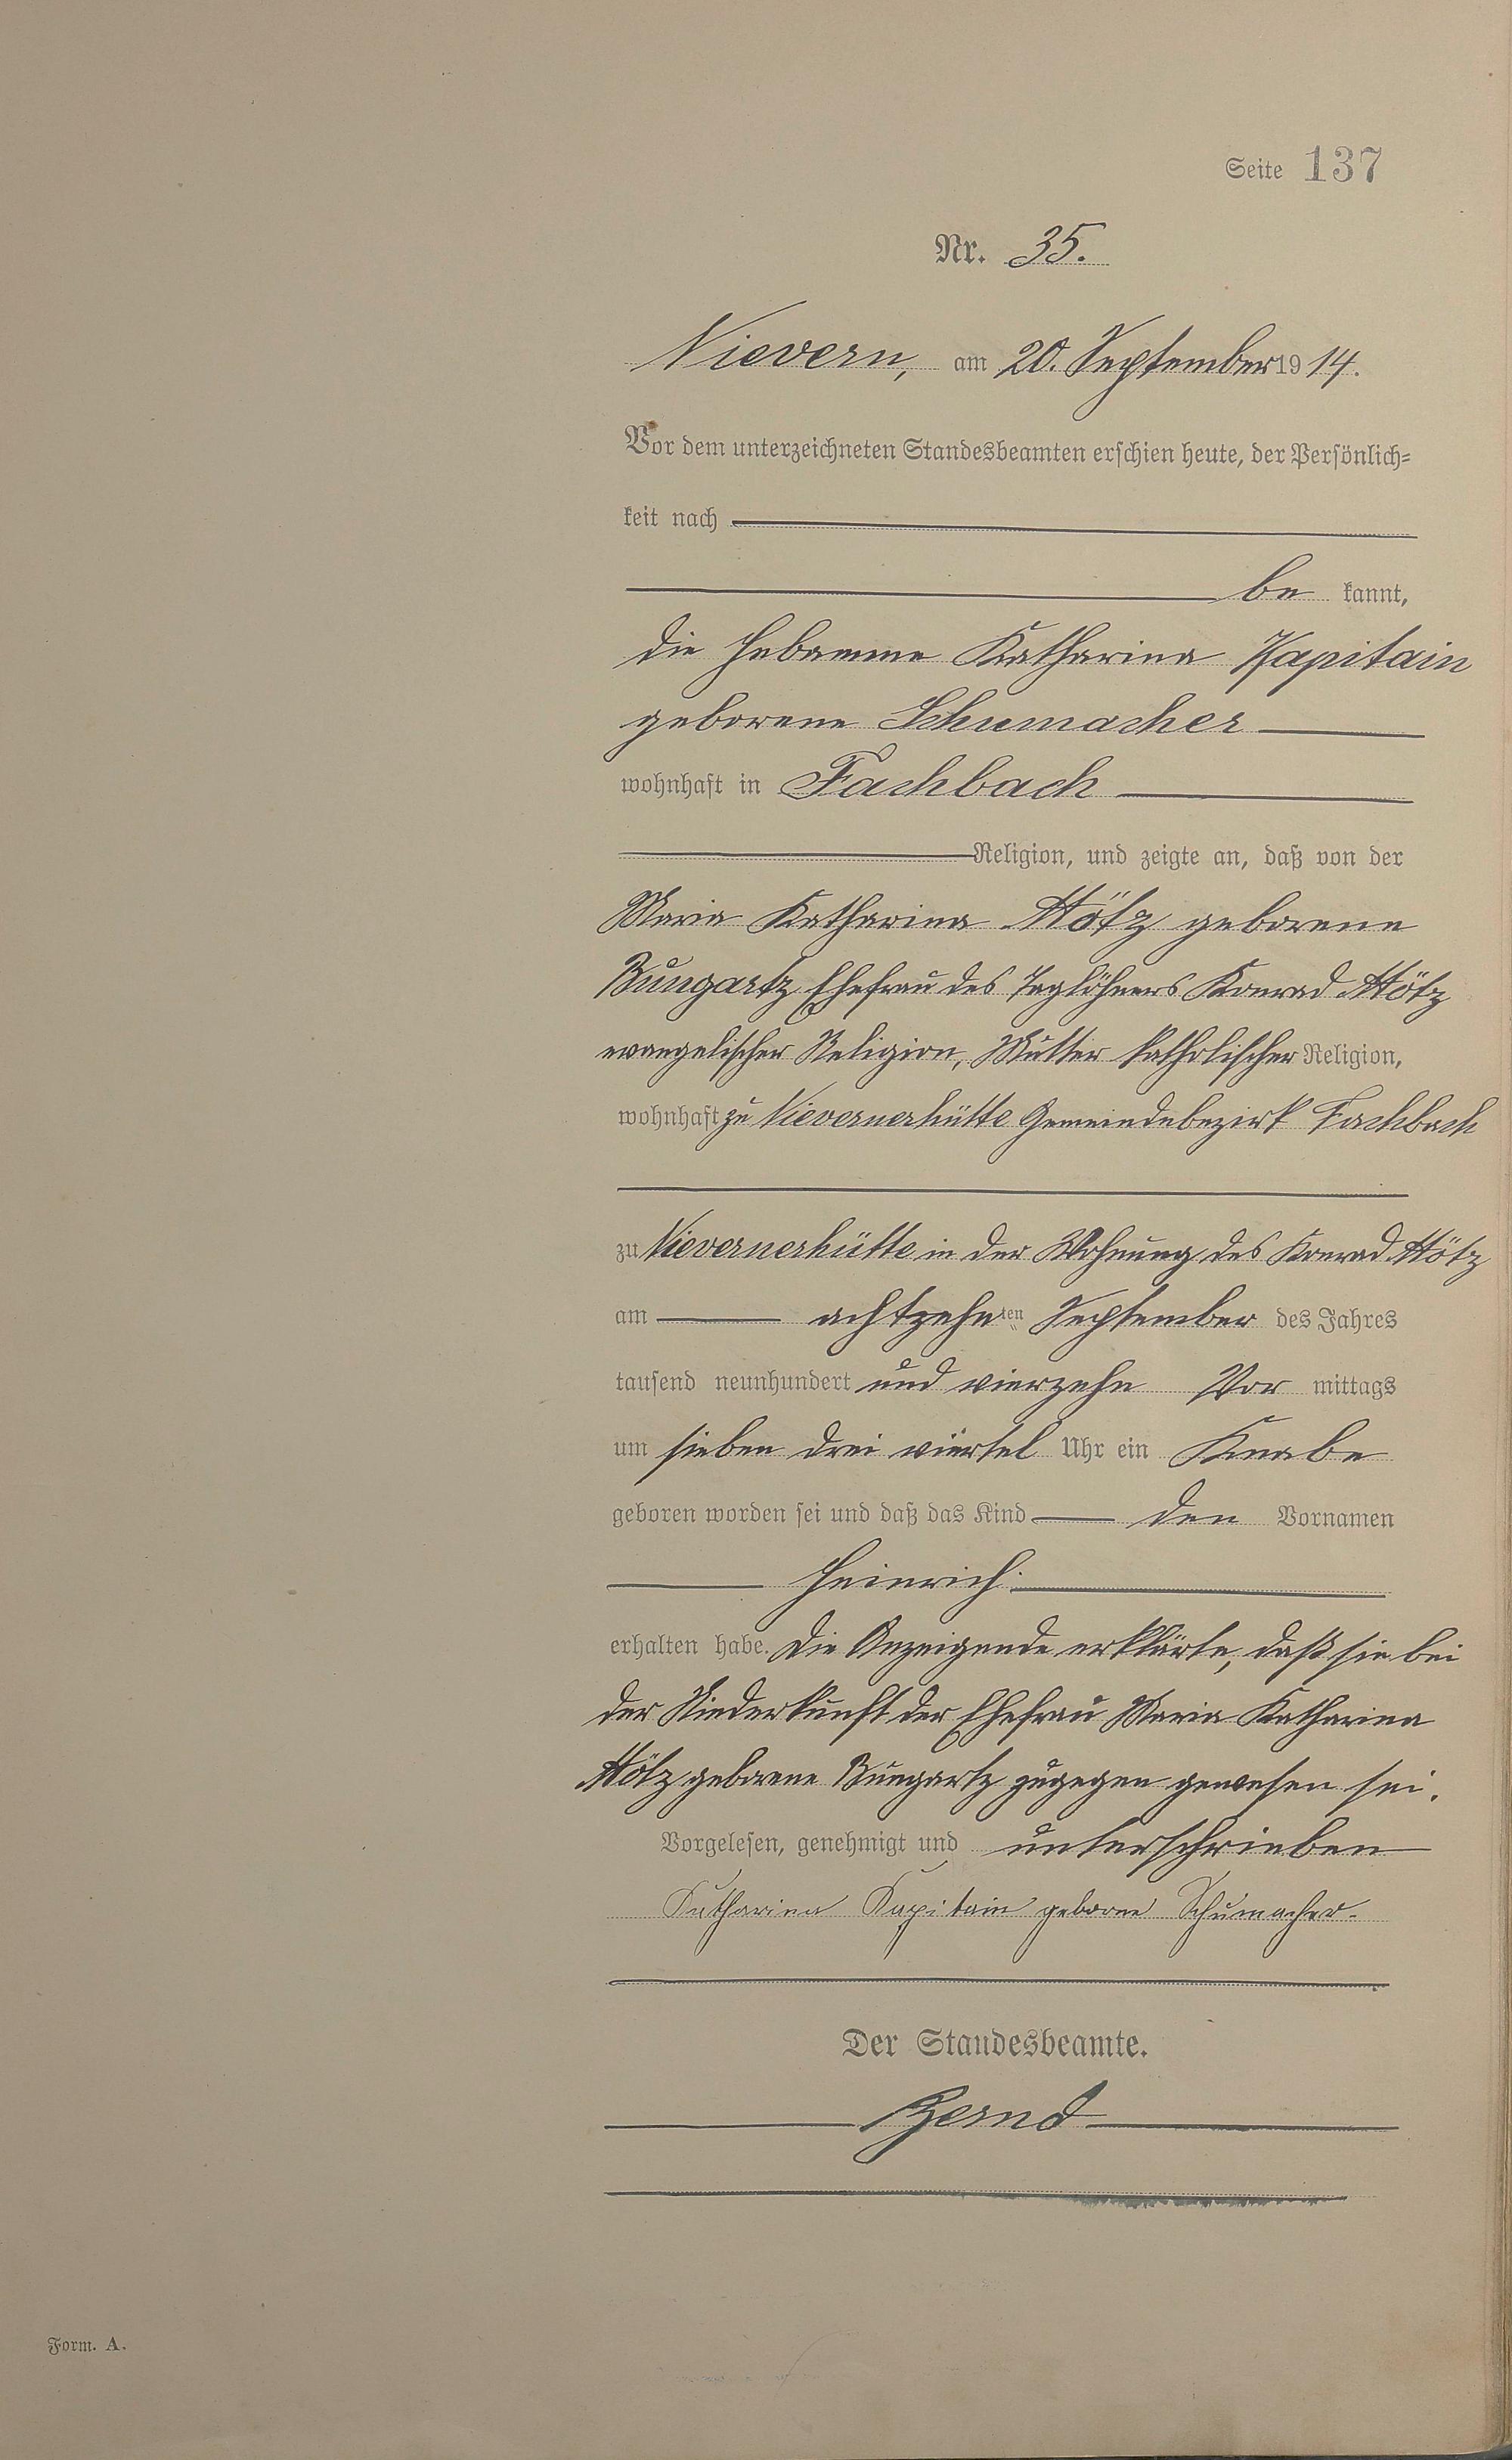 Seite 137
Nr. 35.
Nievern, am 20. September 1914.
Vor dem unterzeichneten Standesbeamten erschien heute, der Persönlich=
keit nach
be kannt,
die Hebamme Katharina Kapitain
geborene Schumacher
wohnhaft in Fachbach
Religion, und zeigte an, daß von der
Maria Katharina Hötz geborene
Bungartz Ehefrau des Taglöhners Konrad Hötz
evangelischer Religion, Mutter katholischer Religion,
wohnhaft zu Nievernerhütte Gemeindebezirk Fachbach
zu Nievernerhütte in der Wohnung des Konrad Hötz
am achtzehnten September des Jahres
tausend neunhundert und vierzehn Vor mittags
um sieben drei viertel Uhr ein Knabe
geboren worden sei und daß das Kind den Vornamen
Heinrich
erhalten habe. Die Anzeigende erklärte, daß sie bei
der Niederkunft der Ehefrau Maria Katharina
Hötz geborene Bungartz zugegen gewesen sei.
Vorgelesen, genehmigt und unterschrieben
Katharina Kapitain geborne Schumacher.
Der Standesbeamte.
Form. A.